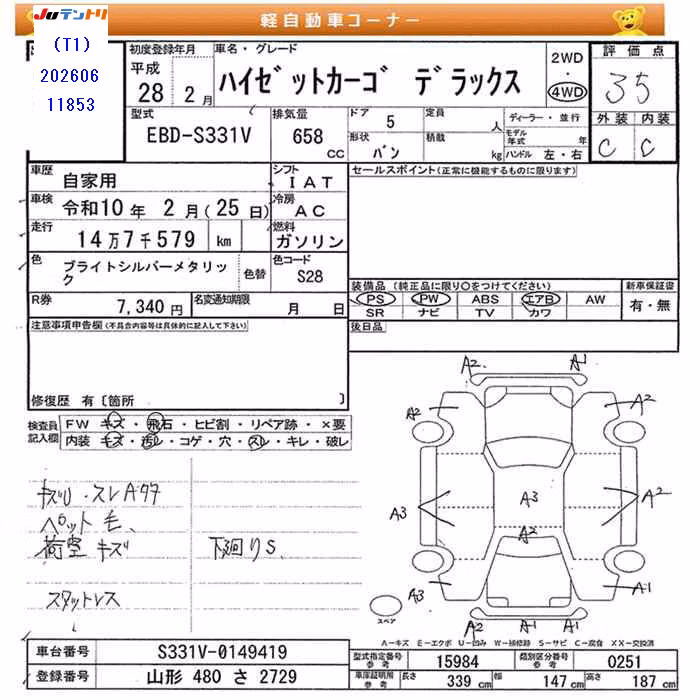 Juテントリ
軽自動車コーナー
(T1)
202606
11853
初度登録年月 平成 28 2月
車名・グレード ハイゼットカーゴ デラックス
2WD・4WD
評価点 35
外装 内装
C C
型式 EBD-S331V
排気量 658 CC
ドア 5 定員 人
形状 バン 積載 kg
ディーラー・並行
モデル年式 年
ハンドル 左・右
車歴 自家用
シフト IAT
セールスポイント(正常に機能するものに限ります)
車検 令和10年 2月(25日)
冷房 AC
走行 14万7千579 km
燃料 ガソリン
色 ブライトシルバーメタリック
色替
色コード S28
装備品(純正品に限り○をつけてください)
新車保証書
PS PW ABS エアB AW
SR ナビ TV カワ
有・無
R券 7,340円
名変通知期限 月 日
後日品
注意事項申告欄(不具合内容等は具体的に記入して下さい)
修復歴 有〔箇所 〕
検査員記入欄
FW キズ・飛石・ヒビ割・リペア跡・×要
内装 キズ・汚レ・コゲ・穴・スレ・キレ・破レ
キズU・スレAタタ
ペット毛、
荷室キズ
下廻りS.
スタットレス
A2 A1
A2 A2
A3 A3 A2
A2
A3 A1
A2 A1 A1
スペア
A-キズ E-エクボ U-凹み W-補修跡 S-サビ C-腐食 XX-交換済
車台番号 S331V-0149419
登録番号 山形 480 さ 2729
型式指定番号 参考 15984
類別区分番号 参考 0251
車庫証明所 参考 長さ 339 cm 幅 147 cm 高さ 187 cm